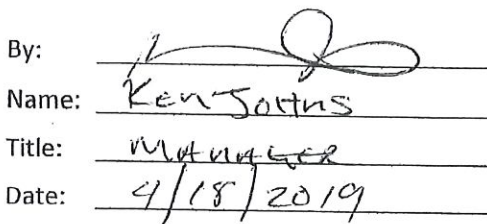 By:
Name: Ken Johns
Title: MANAGER
Date: 4/18/2019